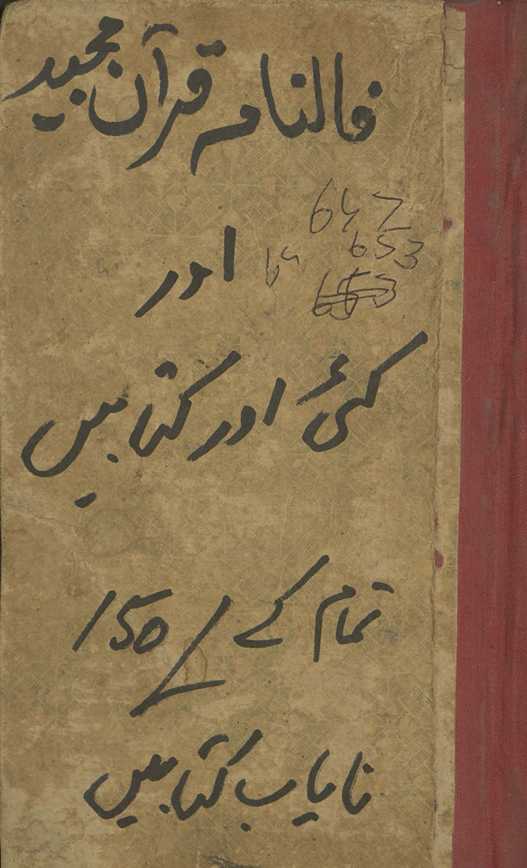 فالنامہ قرآن مجید
647
653
اور
64
653
کئی اور کتابیں
تمام کے 150/
نایاب کتابیں